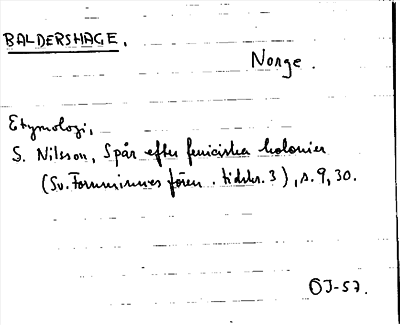 BALDERSHAGE.
Norge.
Etymologi,
S. Nilsson, Spår efter feniciska kolonier
(Sv. Fornminnes fören. tidskr. 3), s. 9, 30.
OJ-57.